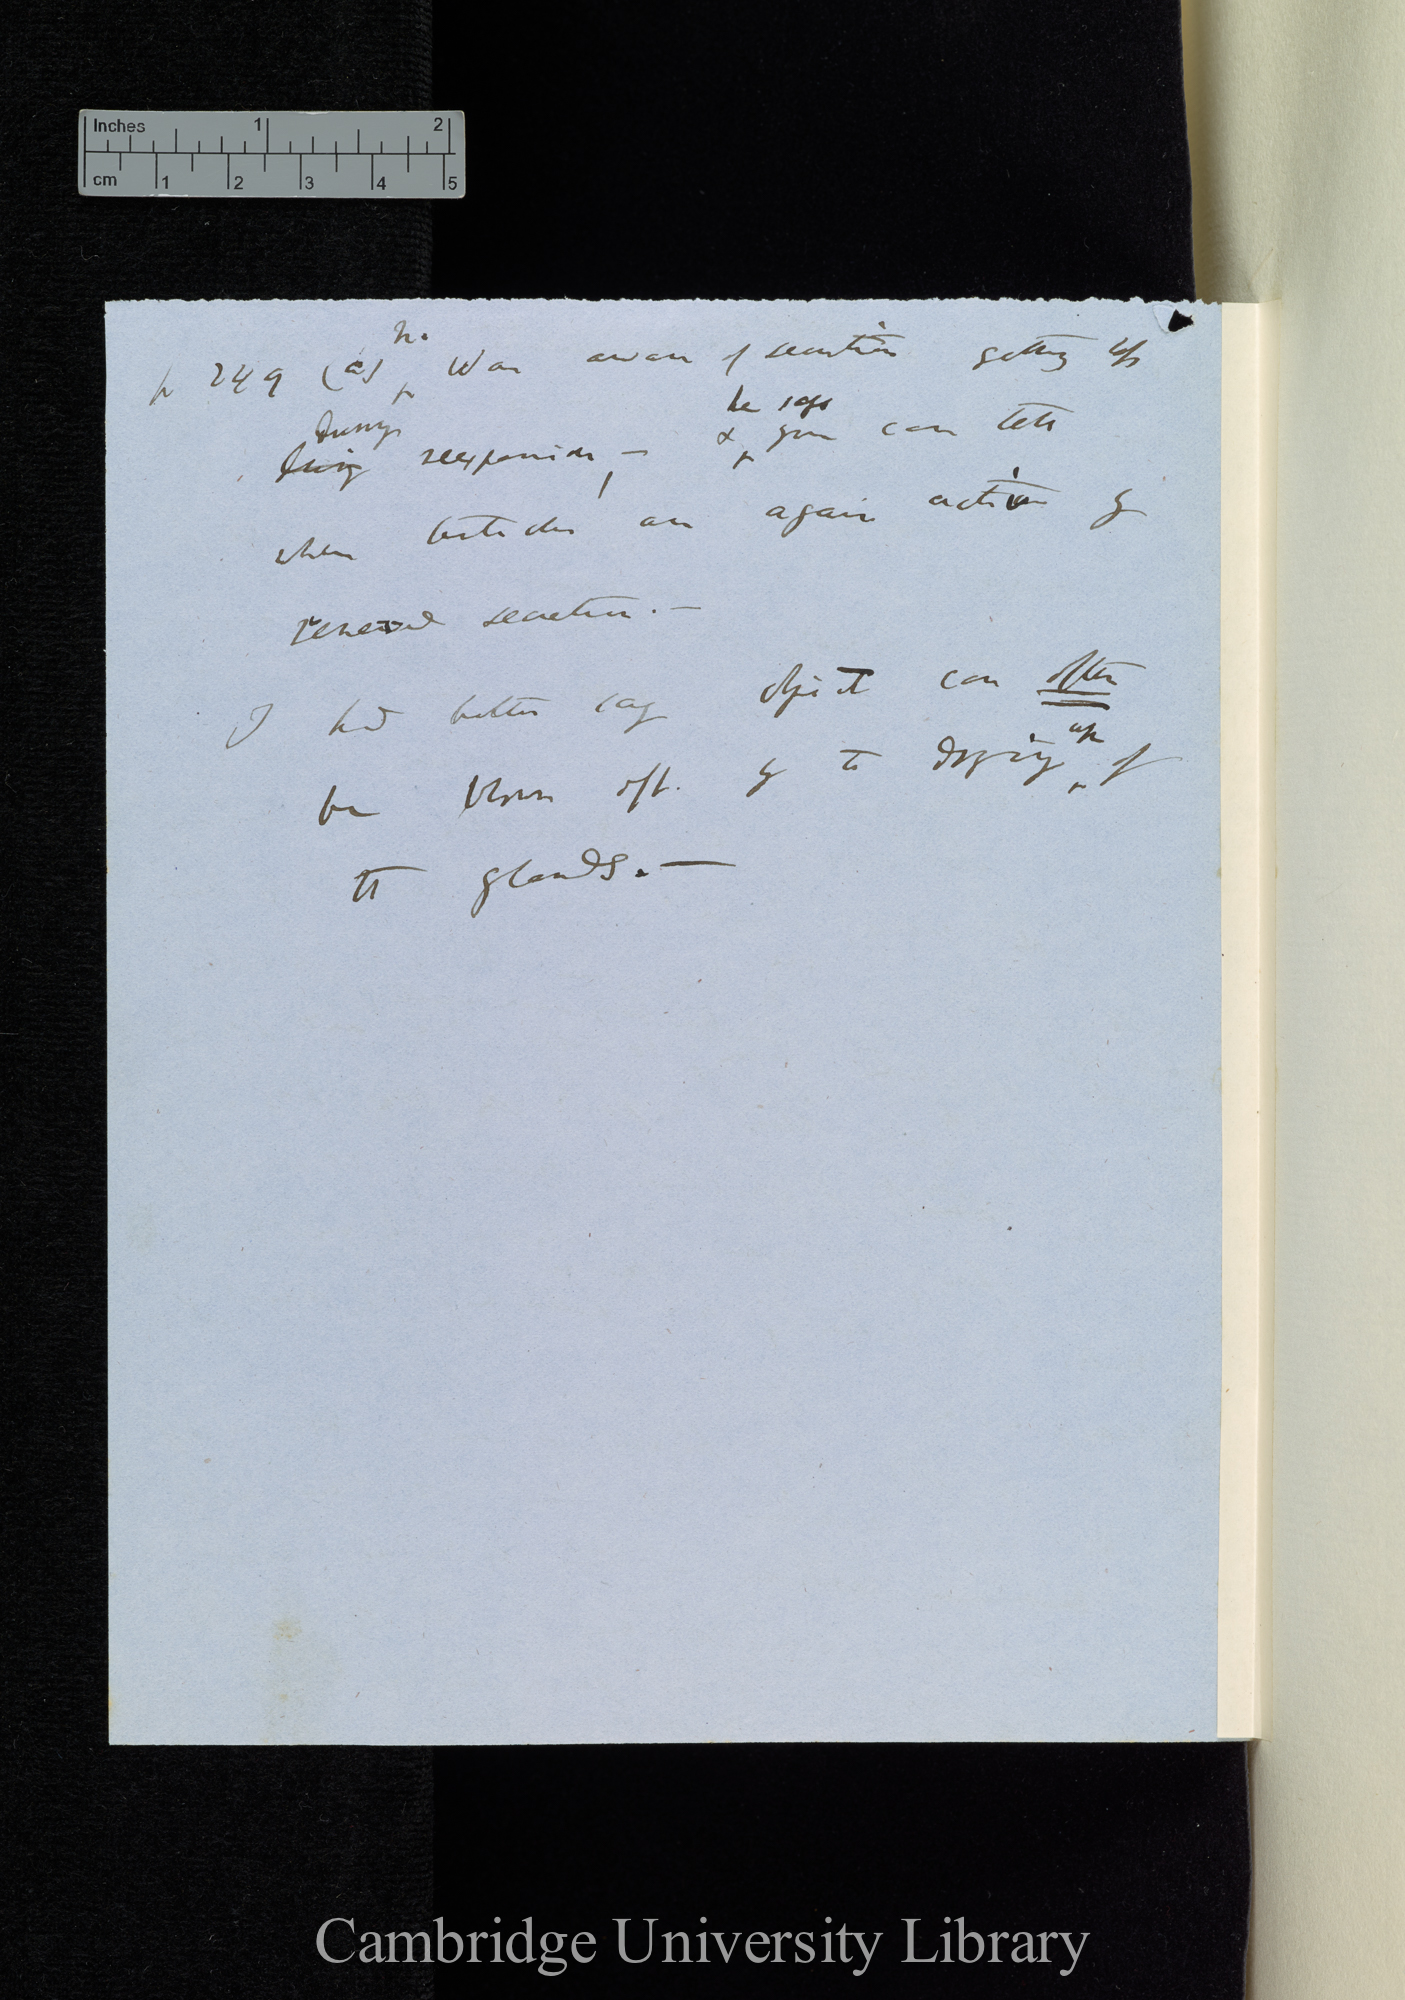 Inches 1 2
cm 1 2 3 4 5
he
p 249 (a) ^ Was aware of secretion getting up
during he says
living reexpansion, — & ^ you can tell
when tentacles are again active by
renewed secretion. —
I had better say object can often
up
be blown off. by to drying ^ of
the glands. —
Cambridge University Library